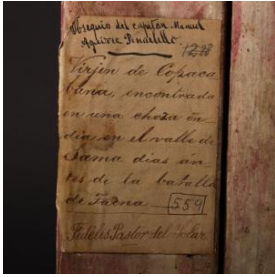 Obsequio del capitán Manuel
Aguirre Pinadello.
1288
Virjen de Copaca
bana, encontrada
en una choza én
dia en el valle de
Sama dias án
tes de la batalla
de Tacna
559
Fidelis Pastor del Solar